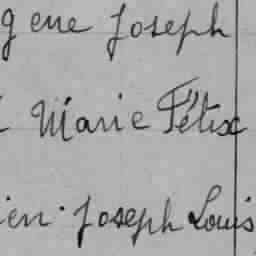 gene Joseph
Marie Félix
ien. Joseph Louis